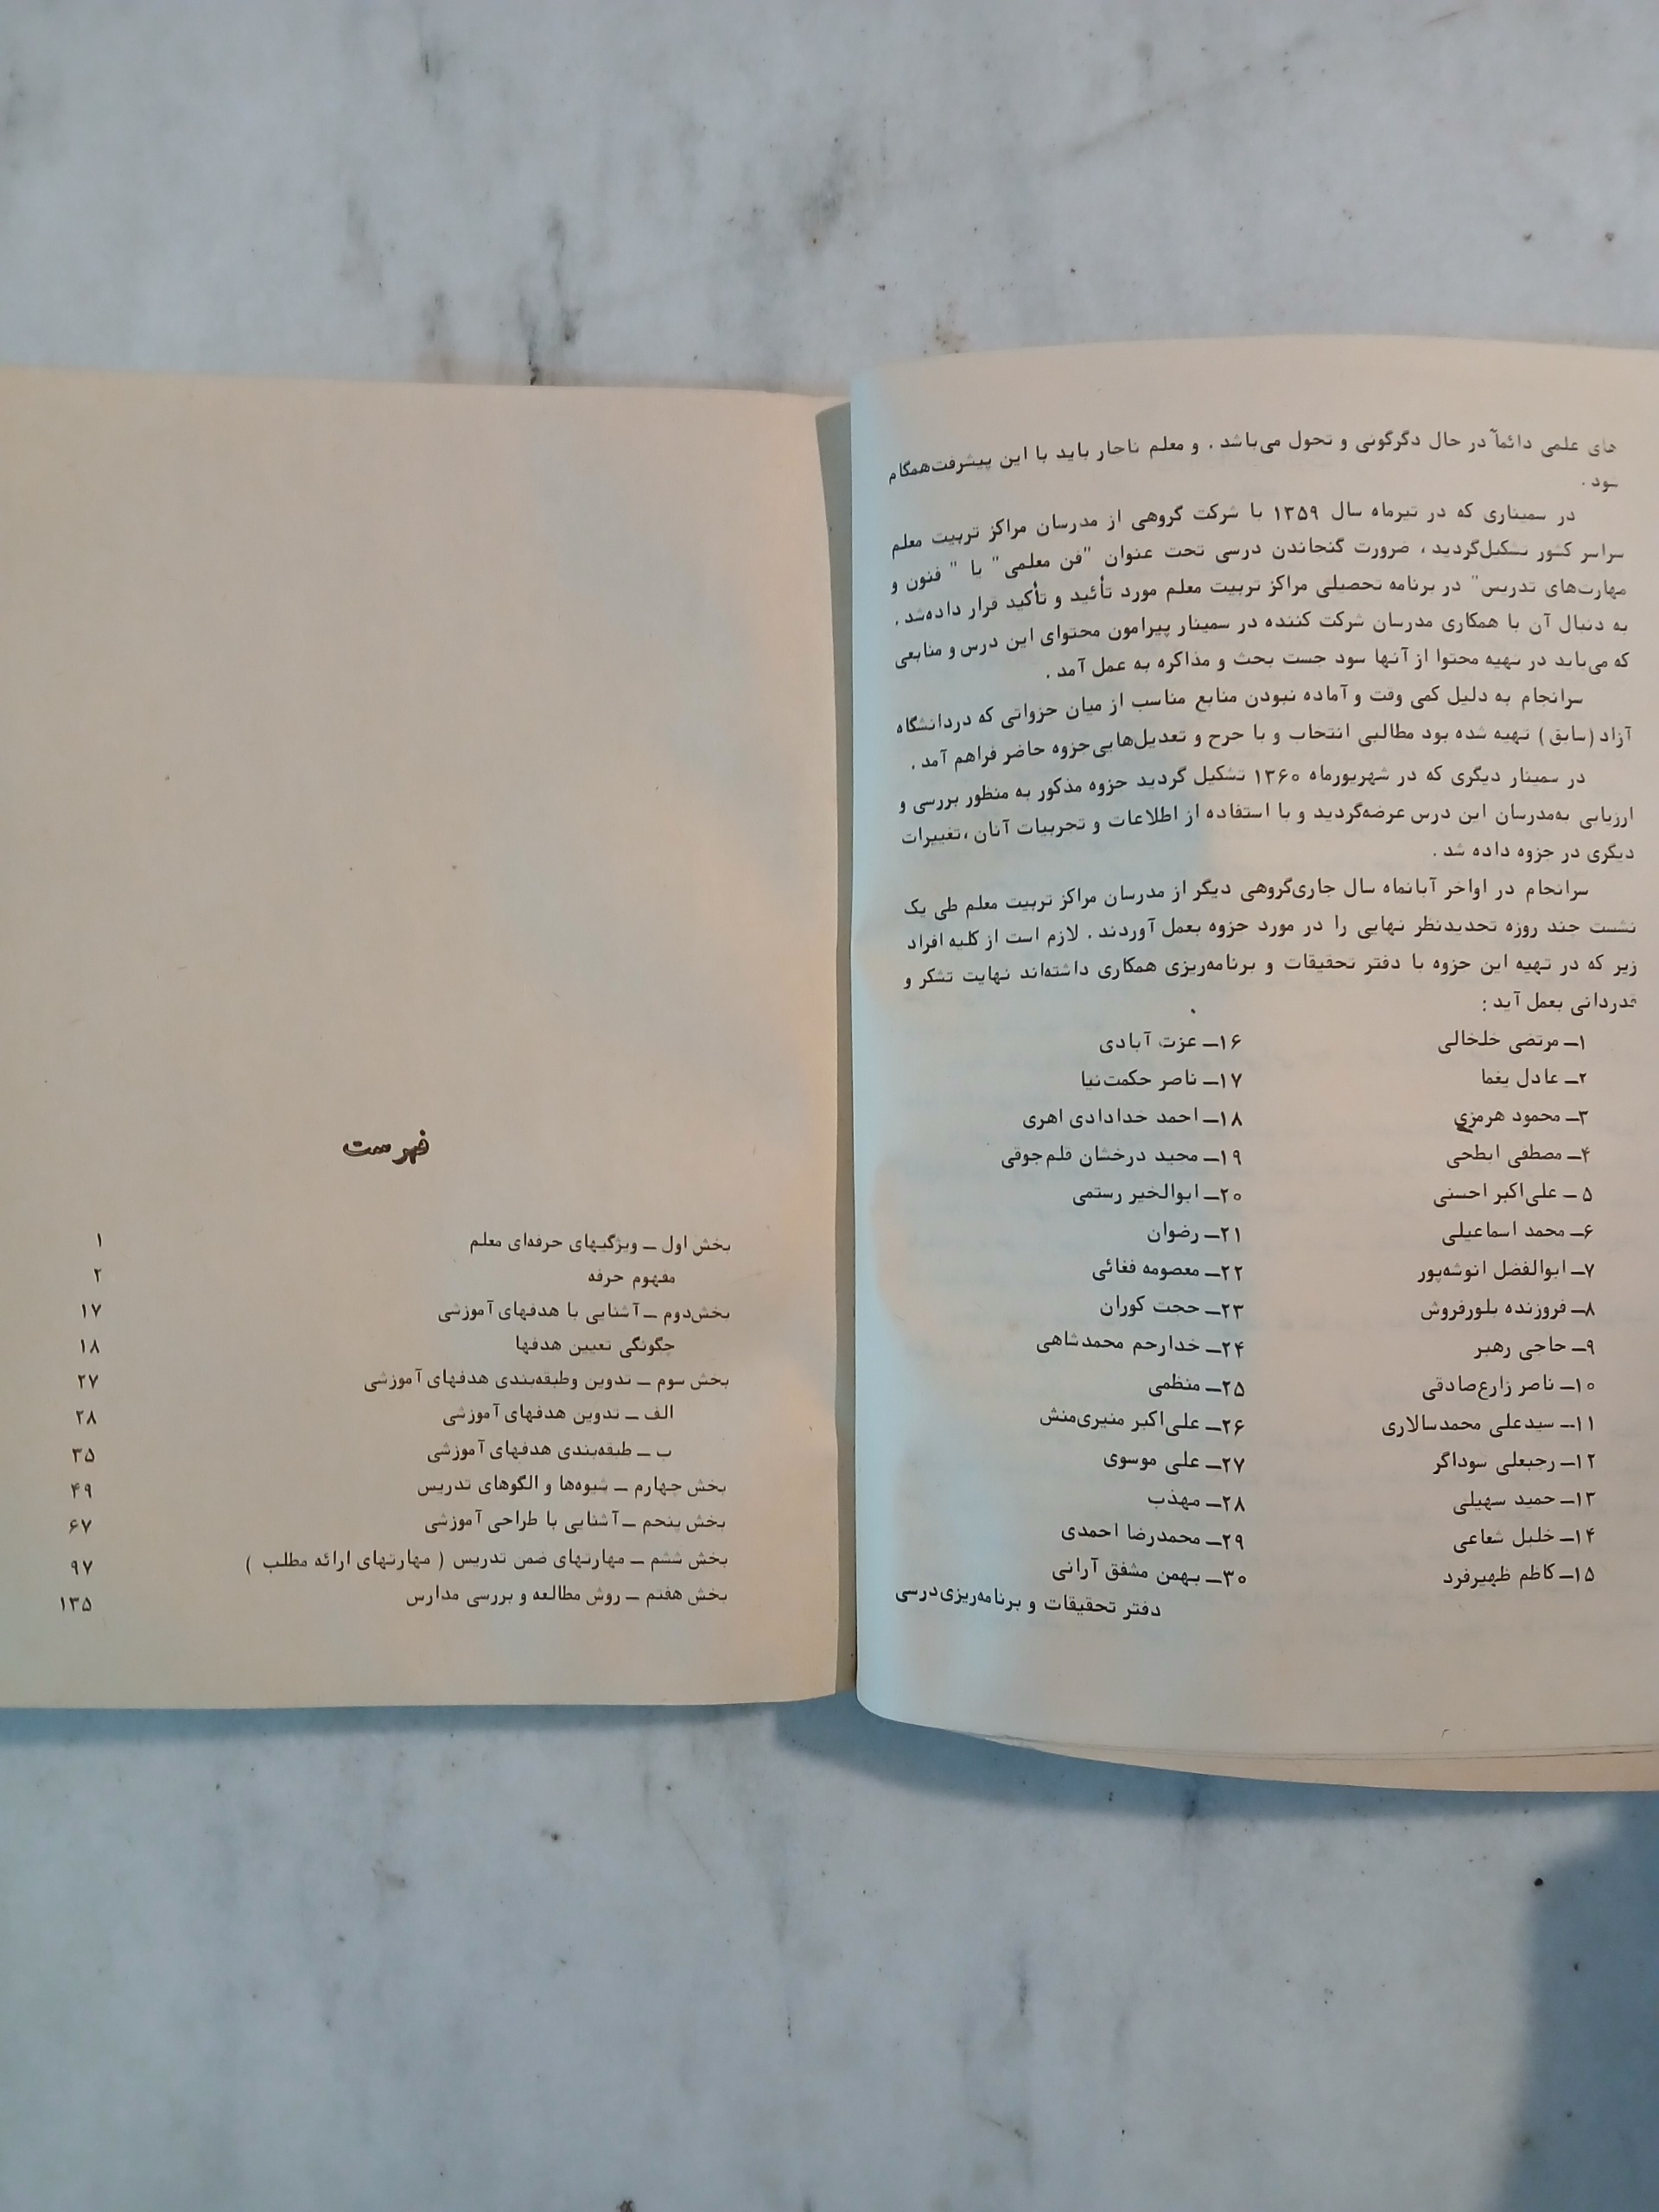 های علمی دائماً در حال دگرگونی و تحول می‌باشد . و معلم ناچار باید با این پیشرفت‌همگام
شود .
در سمیناری که در تیرماه سال ۱۳۵۹ با شرکت گروهی از مدرسان مراکز تربیت معلم
سراسر کشور تشکیل‌گردید ، ضرورت گنجاندن درسی تحت عنوان "فن معلمی" یا " فنون و
مهارت‌های تدریس" در برنامه تحصیلی مراکز تربیت معلم مورد تأئید و تأکید قرار داده‌شد .
به دنبال آن با همکاری مدرسان شرکت کننده در سمینار پیرامون محتوای این درس و منابعی
که می‌باید در تهیه محتوا از آنها سود جست بحث و مذاکره به عمل آمد .
سرانجام به دلیل کمی وقت و آماده نبودن منابع مناسب از میان جزواتی که دردانشگاه
آزاد (سابق) تهیه شده بود مطالبی انتخاب و با جرح و تعدیل‌هایی‌جزوه حاضر فراهم آمد .
در سمینار دیگری که در شهریورماه ۱۳۶۰ تشکیل گردید جزوه مذکور به منظور بررسی و
ارزیابی به‌مدرسان این درس عرضه‌گردید و با استفاده از اطلاعات و تجربیات آنان ،تغییرات
دیگری در جزوه داده شد .
سرانجام در اواخر آبانماه سال جاری‌گروهی دیگر از مدرسان مراکز تربیت معلم طی یک
نشست چند روزه تجدیدنظر نهایی را در مورد جزوه بعمل آوردند . لازم است از کلیه افراد
زیر که در تهیه این جزوه با دفتر تحقیقات و برنامه‌ریزی همکاری داشته‌اند نهایت تشکر و
قدردانی بعمل آید :
۱ــ مرتضی خلخالی
۲ــ عادل یغما
۳ــ محمود هرمزی
۴ــ مصطفی ابطحی
۵ ــ علی‌اکبر احسنی
۶ــ محمد اسماعیلی
۷ــ ابوالفضل انوشه‌پور
۸ــ فروزنده بلورفروش
۹ــ حاجی رهبر
۱۰ــ ناصر زارع‌صادقی
۱۱ــ سیدعلی محمدسالاری
۱۲ــ رجبعلی سوداگر
۱۳ــ حمید سهیلی
۱۴ــ خلیل شعاعی
۱۵ــ کاظم ظهیرفرد
۱۶ــ عزت آبادی
۱۷ــ ناصر حکمت‌نیا
۱۸ــ احمد خدادادی اهری
۱۹ــ مجید درخشان قلم‌جوقی
۲۰ــ ابوالخیر رستمی
۲۱ــ رضوان
۲۲ــ معصومه فغائی
۲۳ــ حجت کوران
۲۴ــ خدارحم محمدشاهی
۲۵ــ منظمی
۲۶ــ علی‌اکبر منیری‌منش
۲۷ــ علی موسوی
۲۸ــ مهذب
۲۹ــ محمدرضا احمدی
۳۰ــ بهمن مشفق آرانی
دفتر تحقیقات و برنامه‌ریزی‌درسی
فهرست
بخش اول ــ ویژگیهای حرفه‌ای معلم ۱
مفهوم حرفه ۲
بخش‌دوم ــ آشنایی با هدفهای آموزشی ۱۷
چگونگی تعیین هدفها ۱۸
بخش سوم ــ تدوین وطبقه‌بندی هدفهای آموزشی ۲۷
الف ــ تدوین هدفهای آموزشی ۲۸
ب ــ طبقه‌بندی هدفهای آموزشی ۳۵
بخش چهارم ــ شیوه‌ها و الگوهای تدریس ۴۹
بخش پنجم ــ آشنایی با طراحی آموزشی ۶۷
بخش ششم ــ مهارتهای ضمن تدریس ( مهارتهای ارائه مطلب ) ۹۷
بخش هفتم ــ روش مطالعه و بررسی مدارس ۱۳۵